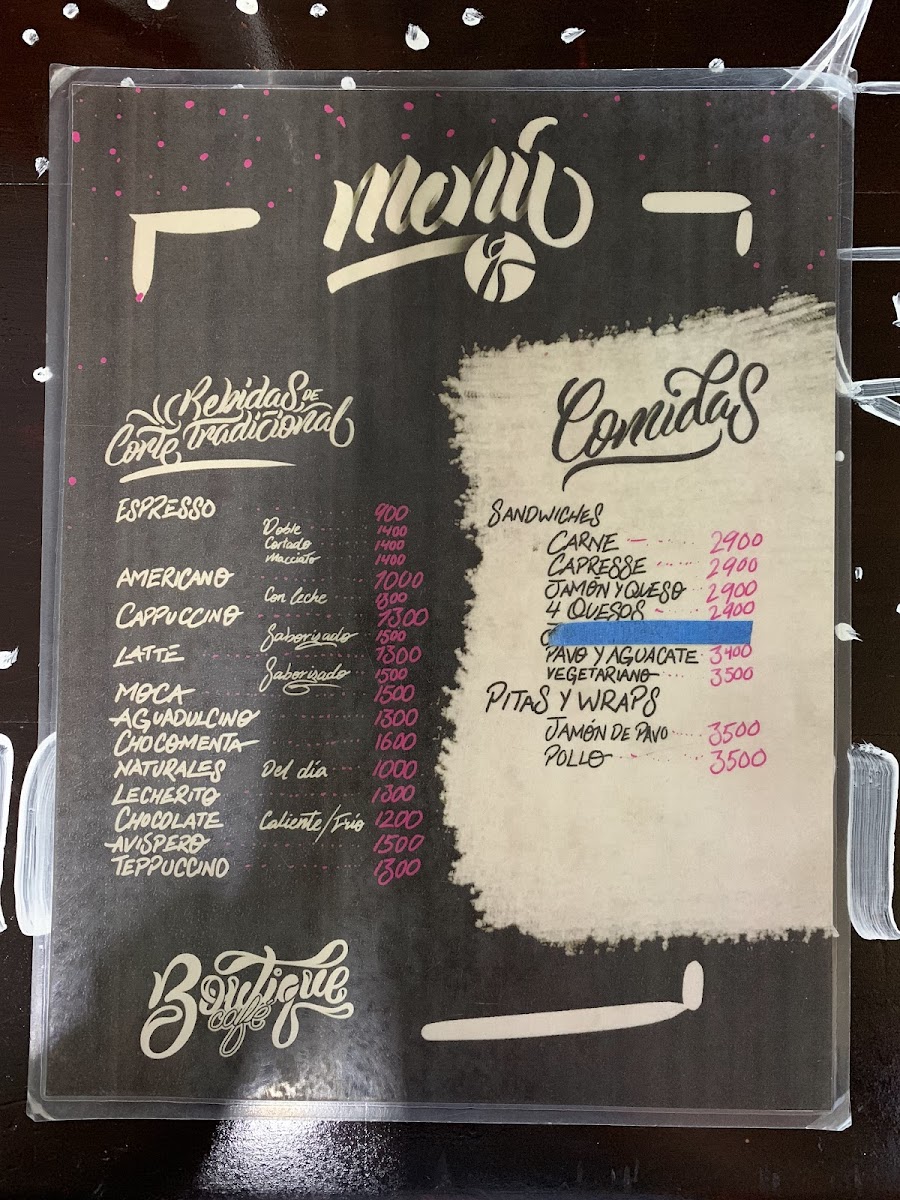 menú
Bebidas DE
Corte Tradicional
ESPRESSO 900
Doble 1400
Cortado 1400
Macciato 1400
AMERICANO 1000
Con leche 1300
CAPPUCCINO 1300
Saborizado 1500
LATTE 1300
Saborizado 1500
MOCA 1500
AGUADULCINO 1300
CHOCOMENTA 1600
NATURALES Del día 1000
LECHERITO 1300
CHOCOLATE Caliente/Frío 1200
AVISPERO 1500
TEPPUCCINO 1300
Boutique
café
Comidas
SANDWICHES
CARNE 2900
CAPRESSE 2900
JAMÓN Y QUESO 2900
4 QUESOS 2900
PAVO Y AGUACATE 3400
VEGETARIANO 3500
PITAS Y WRAPS
JAMÓN DE PAVO 3500
POLLO 3500